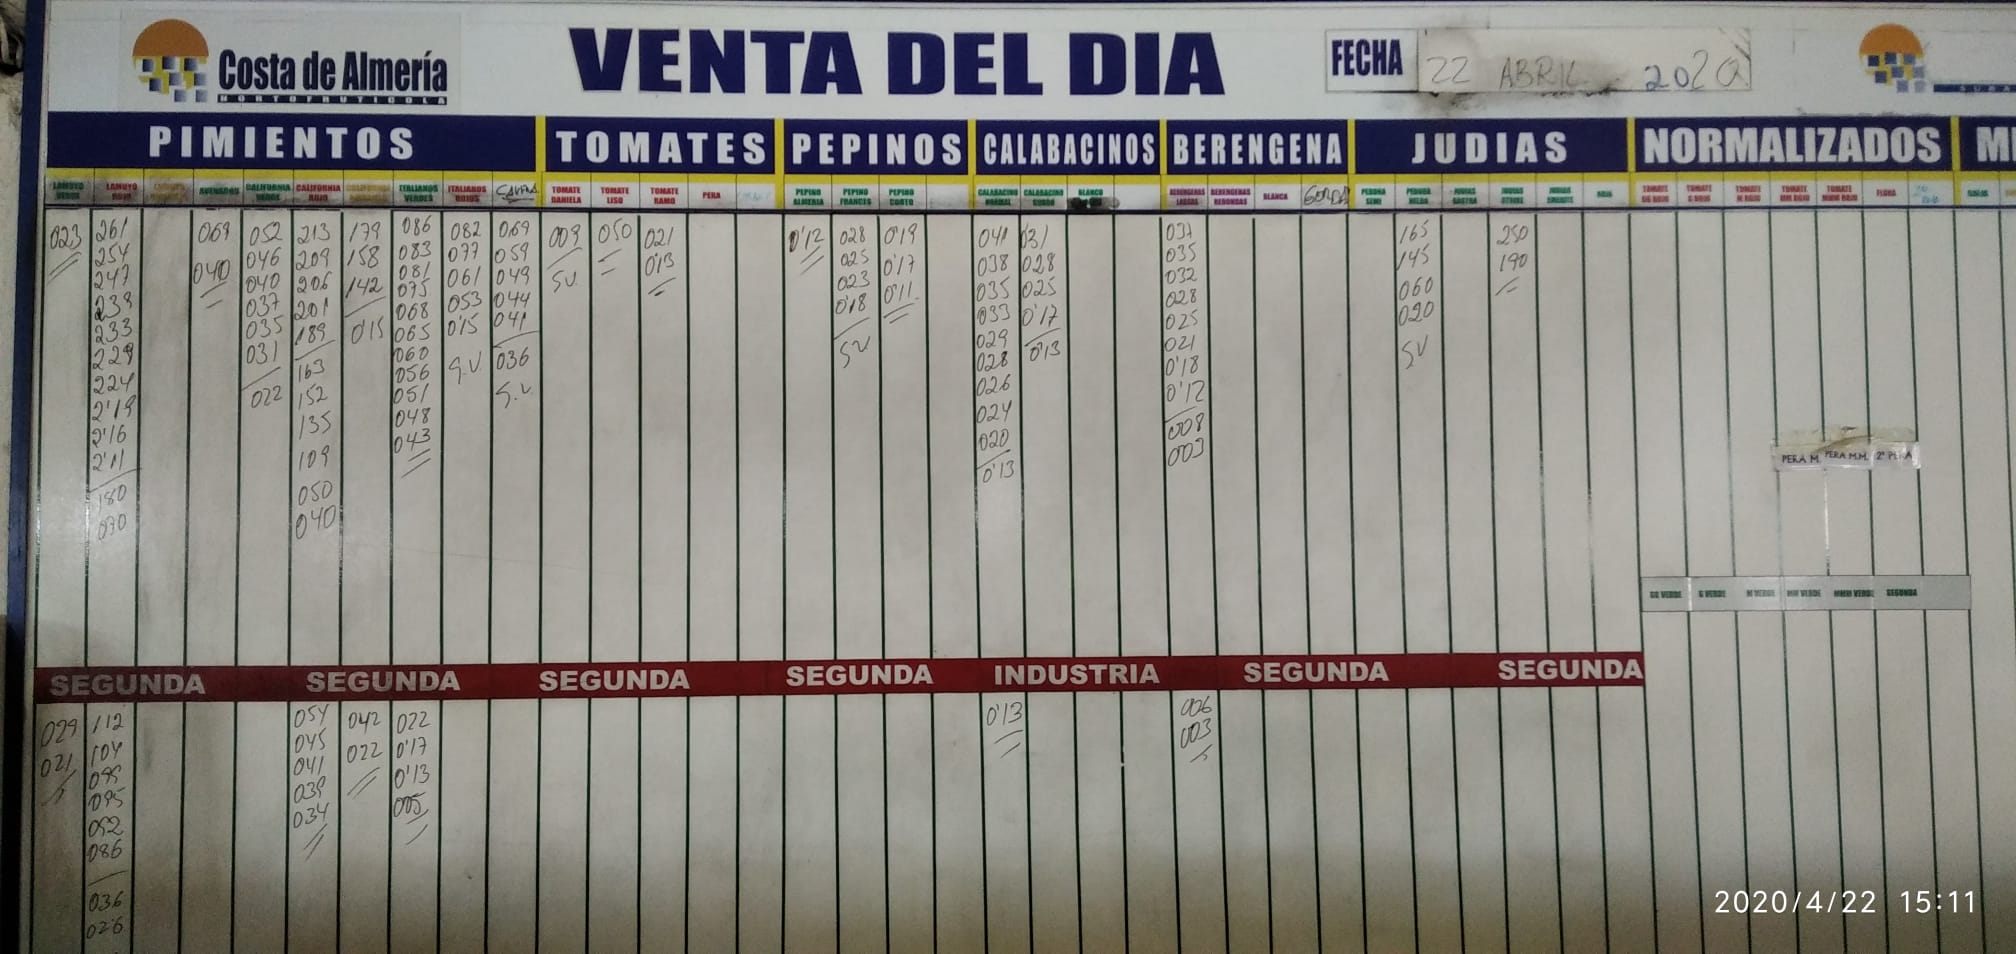 Costa de Almería
HORTOFRUTICOLA
VENTA DEL DIA
FECHA 22 ABRIL 2020
PIMIENTOS TOMATES PEPINOS CALABACINOS BERENGENA JUDIAS NORMALIZADOS
LAMUYO VERDE
023
LAMUYO ROJO
261
254
247
238
233
229
224
2'19
2'16
2'11
180
070
AVENADOS
069
040
CALIFORNIA VERDE
052
046
040
037
035
031
022
CALIFORNIA ROJO
213
209
206
201
189
163
152
135
109
050
040
179
158
142
0'15
ITALIANOS VERDES
086
083
081
075
068
065
060
056
051
048
043
ITALIANOS ROJOS
082
077
061
053
0'15
S.V.
069
059
049
044
041
036
S.V.
TOMATE DANIELA
009
SV.
TOMATE LISO
050
TOMATE RAMO
021
0'13
PERA
PEPINO ALMERIA
0'12
PEPINO FRANCES
028
025
023
0'18
SV
PEPINO CORTO
0'19
0'17
0'11
CALABACINO NORMAL
041
038
035
033
029
028
026
024
020
0'13
CALABACINO GORDO
031
028
025
0'17
0'13
BLANCO
BERENGENAS LARGAS
037
035
032
028
025
021
0'18
0'12
008
003
BERENGENAS REDONDAS
BLANCA
GORDA
PERONA SEMI
165
145
060
020
SV
250
190
ROJA
TOMATE GG ROJO
TOMATE G ROJO
TOMATE M ROJO
TOMATE MM ROJO
TOMATE MMM ROJO
FLORA
PERA M. PERA M.M. 2ª PERA
GG VERDE G VERDE M VERDE MM VERDE MMM VERDE SEGUNDA
SEGUNDA SEGUNDA SEGUNDA SEGUNDA INDUSTRIA SEGUNDA SEGUNDA
029
021
112
104
099
095
092
086
036
026
054
045
041
039
034
042
022
022
0'17
0'13
005
0'13
006
003
2020/4/22 15:11